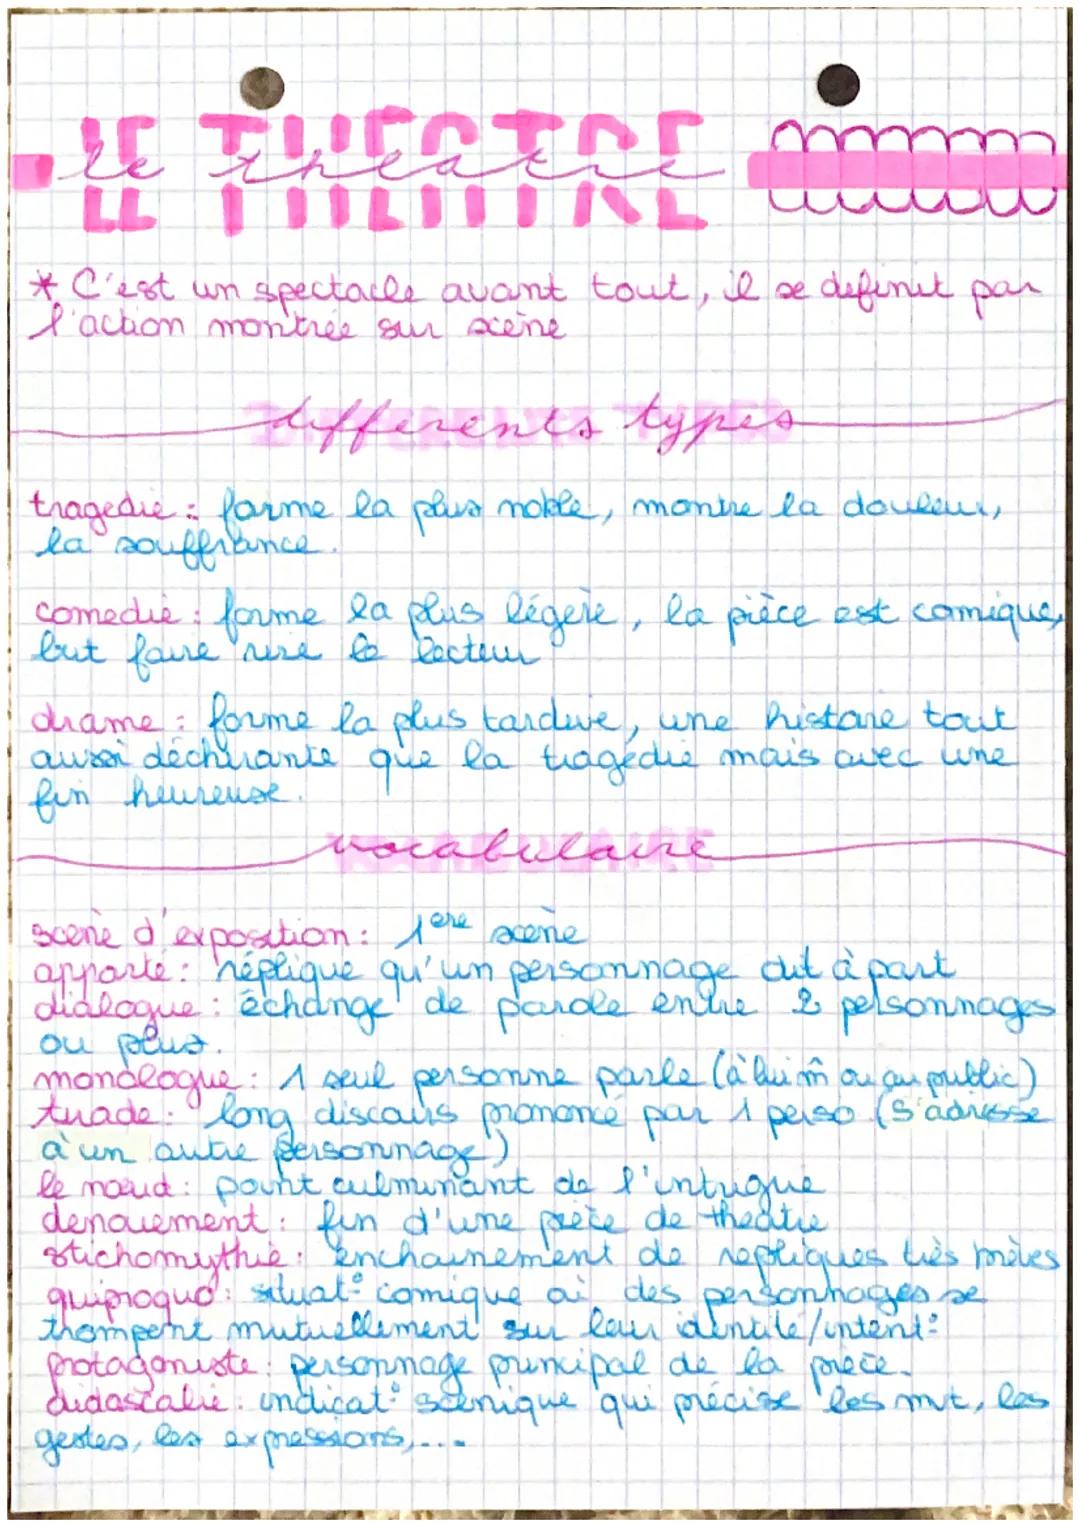 LE THEATRE
le théatre
* C'est un spectacle avant tout, il se definit par
l'action montrée sur scène
differents types
tragedie : forme la plus noble, montre la douleur,
la souffrance.
comedie : forme la plus légère, la pièce est comique,
but faire rire le lecteur
drame : forme la plus tardive, une histoire tout
aussi déchirante que la tragédie mais avec une
fin heureuse.
vocabulaire
scene d'exposition : 1ere scène
apparte : réplique qu'un personnage dit à part
dialogue : échange de parole entre 2 personnages
ou plus.
monologue : 1 seul personne parle (à lui m̂ ou au public)
tirade : long discours prononcé par 1 perso (s'adresse
à un autre personnage)
le nœud : point culminant de l'intrigue
denouement : fin d'une pièce de theatre
stichomythie : enchainement de repliques très brèves
quiproquo : situat° comique où des personnages se
trompent mutuellement sur leur identité/intent°
protagoniste : personnage principal de la pièce.
didascalie : indicat° scénique qui précise les mvt, les
gestes, les expressions,...